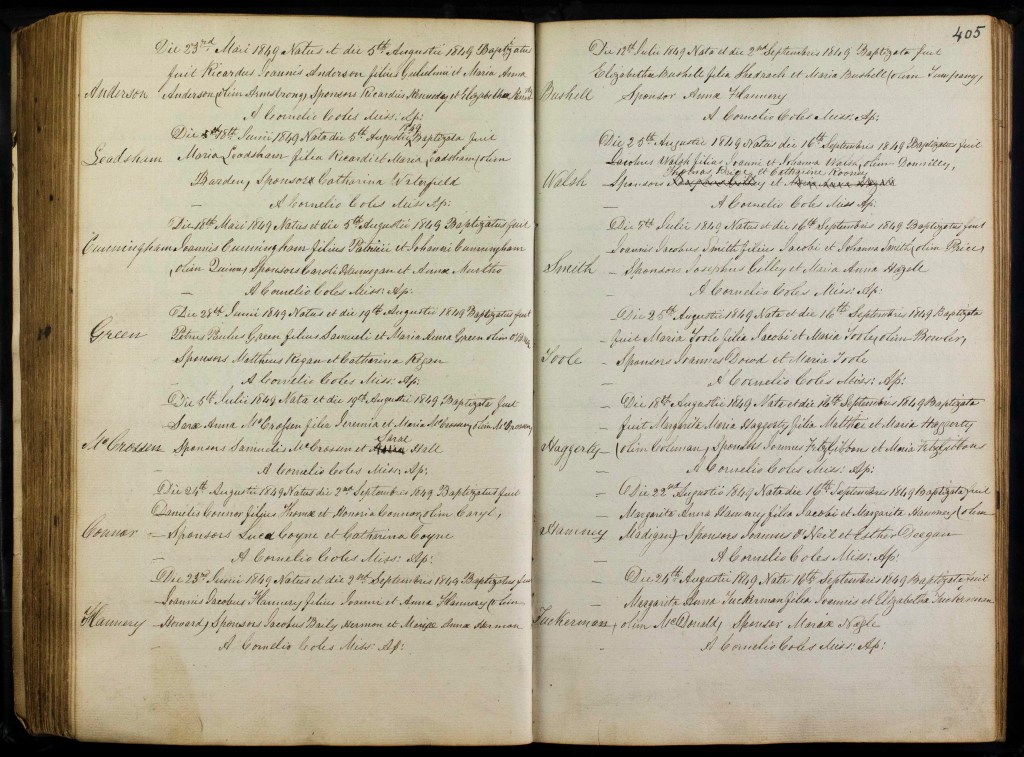 Die 23rd Maii 1849 Natus et die 5th Augustii 1849 Baptizatus
Anderson fuit Ricardus Joannis Anderson filius Gulielmi et Maria Anna
Anderson (olim Armstrong, Sponsors Ricardus Kennedy et Elizabetha
A Cornelio Coles Miss: Ap:
Die 18th Junii 1849 Nata die 5th Augustii 1849 Baptizata fuit
Leadsham Maria Leadsham filia Ricardi et Maria Leadsham olim
Barden, Sponsor Catharina Waterfield
A Cornelio Coles Miss: Ap:
Die 18th Maii 1849 Natus et die 5th Augustii 1849 Baptizatus fuit
Cunningham Joannis Cunningham filius Patricii et Johanna Cunningham
(olim Quinn, Sponsors Caroli et Anna
A Cornelio Coles Miss: Ap:
Die 28th Junii 1849 Natus et die 19th Augustii 1849 Baptizatus fuit
Green Petrus Paulus Green filius Samueli et Maria Anna Green olim
Sponsors Mattheus Regan et Catharina Regan
A Cornelio Coles Miss: Ap:
Die 5th Julii 1849 Nata et die 19th Augustii 1849 Baptizata fuit
Sara Anna McCrossen filia Jeremia et Maria McCrossen (olim McCrossen,
McCrossen Sponsors Samueli McCrossen et Sarae Hall
A Cornelio Coles Miss: Ap:
Die 24th Augustii 1849 Natus die 2nd Septembris 1849 Baptizatus fuit
Danielis Connor filius Thomæ et Honoria Connor, olim Caryl,
Connor – Sponsors Luca Coyne et Catharina Coyne
A Cornelio Coles Miss: Ap:
Die 23rd Junii 1849 Natus et die 2nd Septembris 1849 Baptizatus fuit
Joannis Jacobus Hannery filius Joanne et Anna Hannery (olim
Hannery – Howard, Sponsors Jacobus Harmon et Anna Harman
– A Cornelio Coles Miss: Ap:
405
Die 12th Julii 1849 Nata et die 2nd Septembris 1849 Baptizata fuit
Elizabetha Bushell filia Shadrach et Maria Bushell (olim
Bushell Sponsor Anna Flannery
A Cornelio Coles Miss: Ap:
Die 25th Augustii 1849 Natus die 16th Septembris 1849 Baptizatus fuit
Jacobus Walsh filius Joanni et Johanna Walsh, olim Donnilley,
Thomas et Catharine Rooney
Walsh – Sponsors et
– A Cornelio Coles Miss Ap:
Die 5th Julii 1849 Natus et die 16th Septembris 1849 Baptizatus fuit
Joannis Jacobus Smith filius Jacobi et Johanna Smith (olim Price,
Smith – Sponsors Josephus Colley et Maria Anna
A Cornelio Coles Miss: Ap:
Die 25th Augustii 1849 Nata et die 16th Septembris 1849 Baptizata
fuit Maria Toole filia Jacobi et Maria Toole, olim Bowler,
Toole – Sponsors Joannes Dowd et Maria Toole
A Cornelio Coles Miss: Ap:
– Die 18th Augustii 1849 Nata et die 16th Septembris 1849 Baptizata
– fuit Margarita Maria Haggerty filia Matthei et Maria Haggerty
Haggerty – (olim Coleman, Sponsors Joannes FitzGibbons et Maria Fitzgibbons
– A Cornelio Coles Miss: Ap:
– Die 22nd Augustii 1849 Nata die 16th Septembris 1849 Baptizata fuit
– Margarita Anna Hanney filia Jacobi et Margarita Hanney (olim
Hanney Madigan) – Sponsors Joannes O'Neil et Esther Deegan
– A Cornelio Coles Miss: Ap:
– Die 24th Augustii 1849 Nata 16th Septembris 1849 Baptizata fuit
– Margarita Anna Tuckerman filia Joannis et Elizabetha Tuckerman
Tuckerman, olim McDonald, Sponsor Nagle
– A Cornelio Coles Miss: Ap: